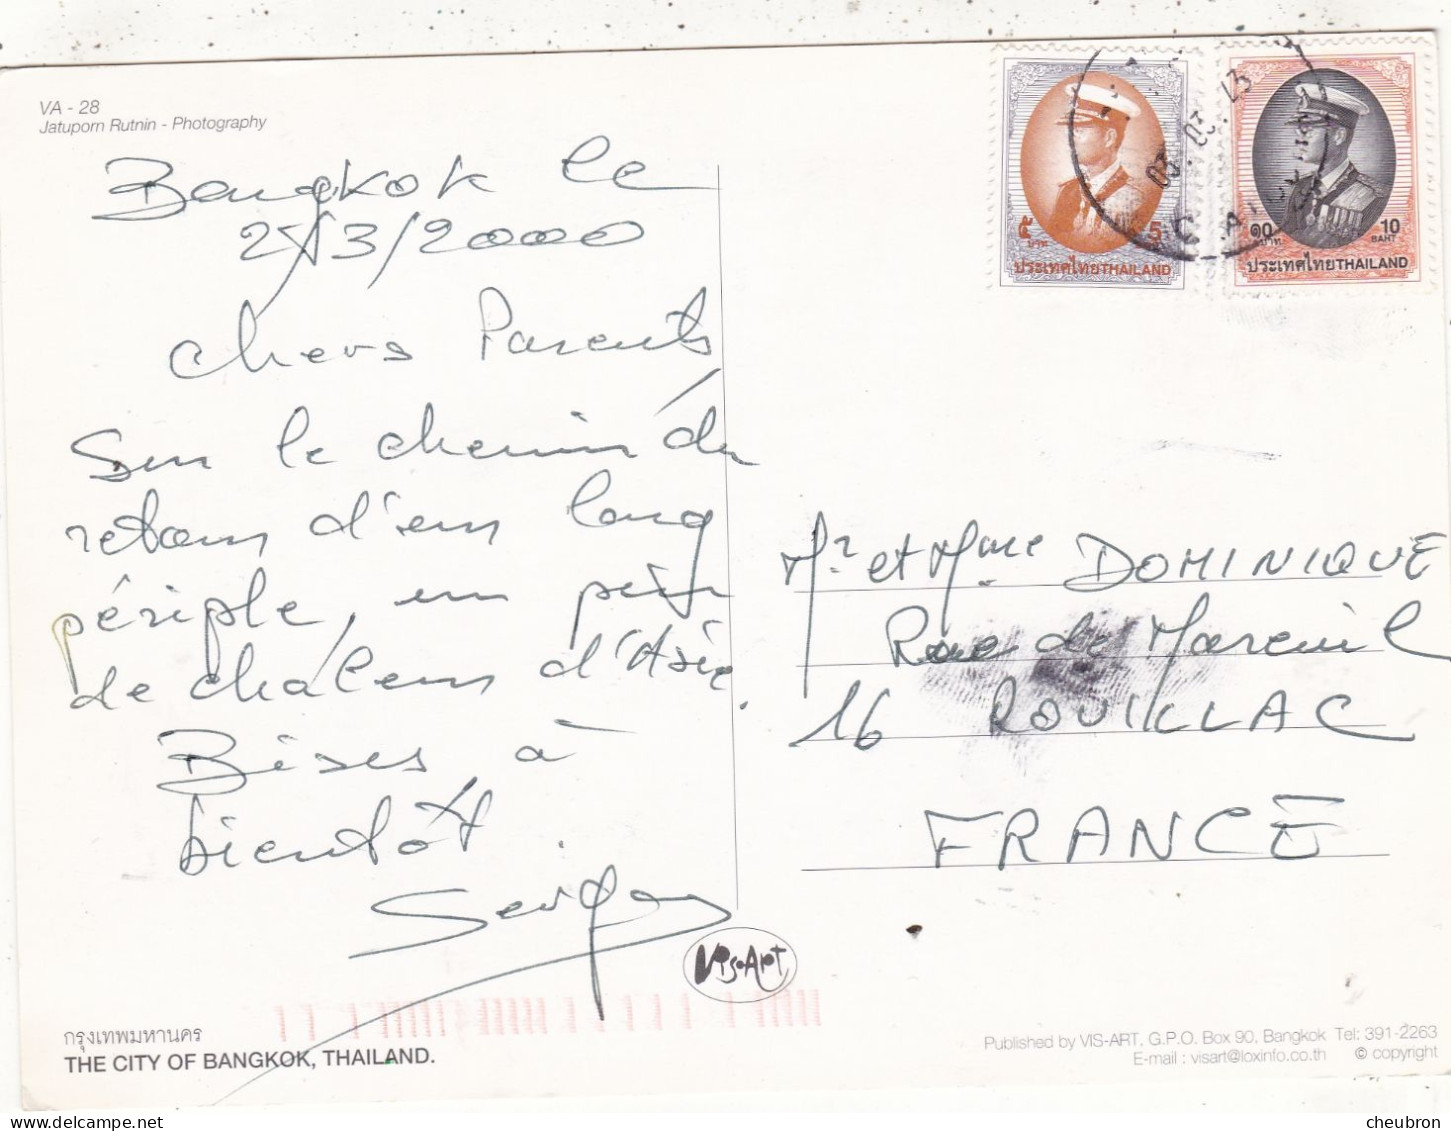 VA - 28
Jatuporn Rutnin - Photography
Bangkok le
2/3/2000
Chers Parents
Sur le chemin du
retour d'un long
périple, un petit
de chaleur d'Asie.
Bises à
bientôt.
Serge
๕ บาท 5
ประเทศไทย THAILAND
๑๐ บาท 10 BAHT
ประเทศไทย THAILAND
Mr et Mme DOMINIQUE
Rue de Mareuil
16 ROUILLAC
FRANCE
Vis•Art
กรุงเทพมหานคร
THE CITY OF BANGKOK, THAILAND.
Published by VIS-ART, G.P.O. Box 90, Bangkok Tel: 391-2263
E-mail : visart@loxinfo.co.th © copyright
cheubron